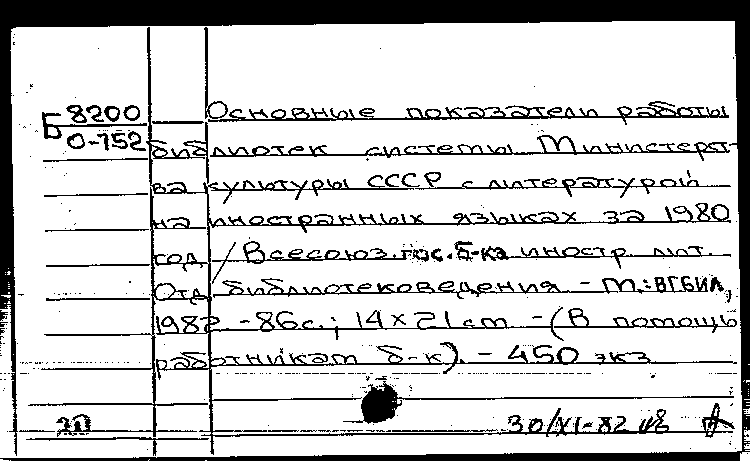 Б 8200
О-752
Основные показатели работы
библиотек системы Министерст-
ва культуры СССР с литературой
на иностранных языках за 1980
год / Всесоюз. гос. б-ка иностр. лит.
Отд. библиотековедения - М.: ВГБИЛ,
1982 - 86с.; 14×21см - (В помощь
работникам б-к). - 450 экз
30/XI-82